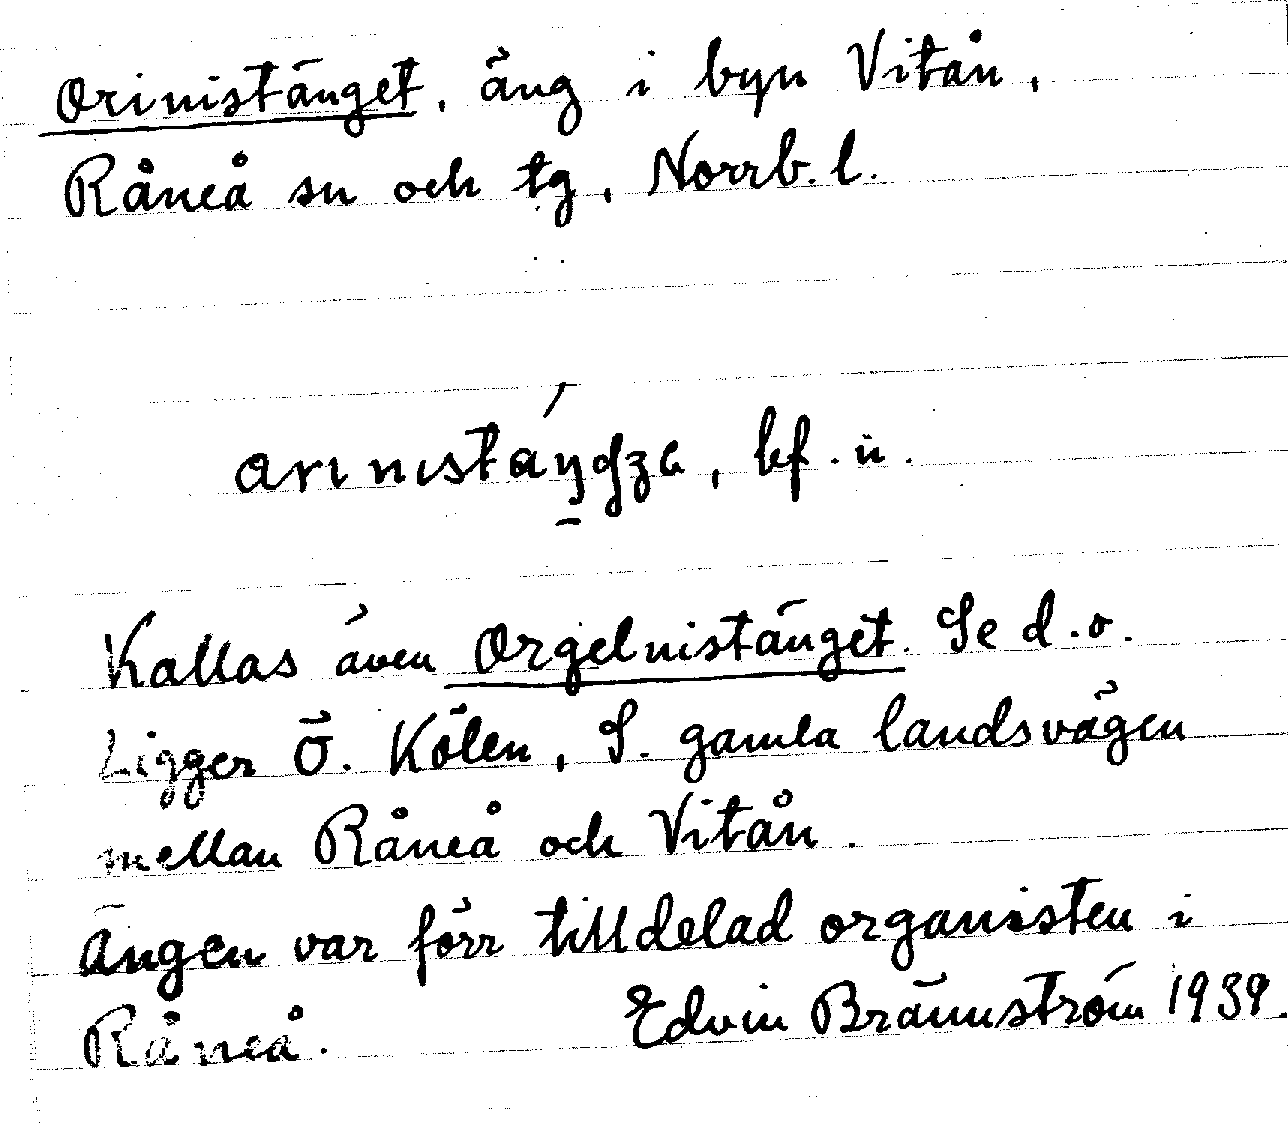 Orinistänget, äng i byn Vitån,
Råneå sn och tg, Norrb. l.
bf. n.
Kallas även Orgelnistänget. Se d. o.
Ligger Ö. Kölen, S. gamla landsvägen
mellan Råneå och Vitån.
Ängen var förr tilldelad organisten i
Råneå. Edvin Brännström 1939.